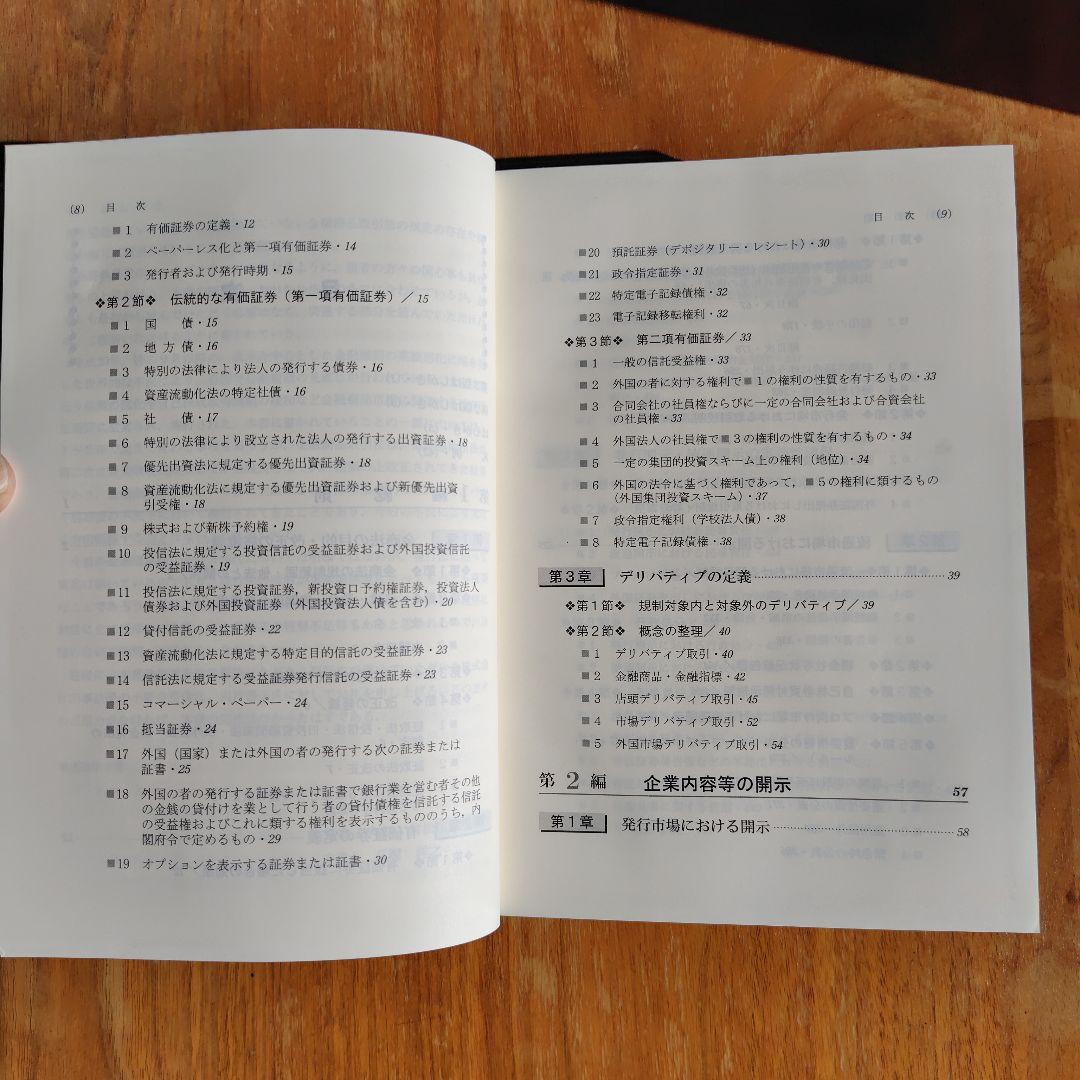 (8) 目 次
■1 有価証券の定義・12
■2 ペーパーレス化と第一項有価証券・14
■3 発行者および発行時期・15
❖第2節❖ 伝統的な有価証券（第一項有価証券）／15
■1 国 債・15
■2 地 方 債・16
■3 特別の法律により法人の発行する債券・16
■4 資産流動化法の特定社債・16
■5 社 債・17
■6 特別の法律により設立された法人の発行する出資証券・18
■7 優先出資法に規定する優先出資証券・18
■8 資産流動化法に規定する優先出資証券および新優先出資
引受権・18
■9 株式および新株予約権・19
■10 投信法に規定する投資信託の受益証券および外国投資信託
の受益証券・19
■11 投信法に規定する投資証券，新投資口予約権証券，投資法人
債券および外国投資証券（外国投資法人債を含む）・20
■12 貸付信託の受益証券・22
■13 資産流動化法に規定する特定目的信託の受益証券・23
■14 信託法に規定する受益証券発行信託の受益証券・23
■15 コマーシャル・ペーパー・24
■16 抵当証券・24
■17 外国（国家）または外国の者の発行する次の証券または
証書・25
■18 外国の者の発行する証券または証書で銀行業を営む者その他
の金銭の貸付けを業として行う者の貸付債権を信託する信託
の受益権およびこれに類する権利を表示するもののうち，内
閣府令で定めるもの・29
■19 オプションを表示する証券または証書・30
目 次 (9)
■20 預託証券（デポジタリー・レシート）・30
■21 政令指定証券・31
■22 特定電子記録債権・32
■23 電子記録移転権利・32
❖第3節❖ 第二項有価証券／33
■1 一般の信託受益権・33
■2 外国の者に対する権利で■1の権利の性質を有するもの・33
■3 合同会社の社員権ならびに一定の合同会社および合資会社
の社員権・33
■4 外国法人の社員権で■3の権利の性質を有するもの・34
■5 一定の集団的投資スキーム上の権利（地位）・34
■6 外国の法令に基づく権利であって，■5の権利に類するもの
（外国集団投資スキーム）・37
■7 政令指定権利（学校法人債）・38
■8 特定電子記録債権・38
第3章 デリバティブの定義……39
❖第1節❖ 規制対象内と対象外のデリバティブ／39
❖第2節❖ 概念の整理／40
■1 デリバティブ取引・40
■2 金融商品・金融指標・42
■3 店頭デリバティブ取引・45
■4 市場デリバティブ取引・52
■5 外国市場デリバティブ取引・54
第2編 企業内容等の開示 57
第1章 発行市場における開示……58